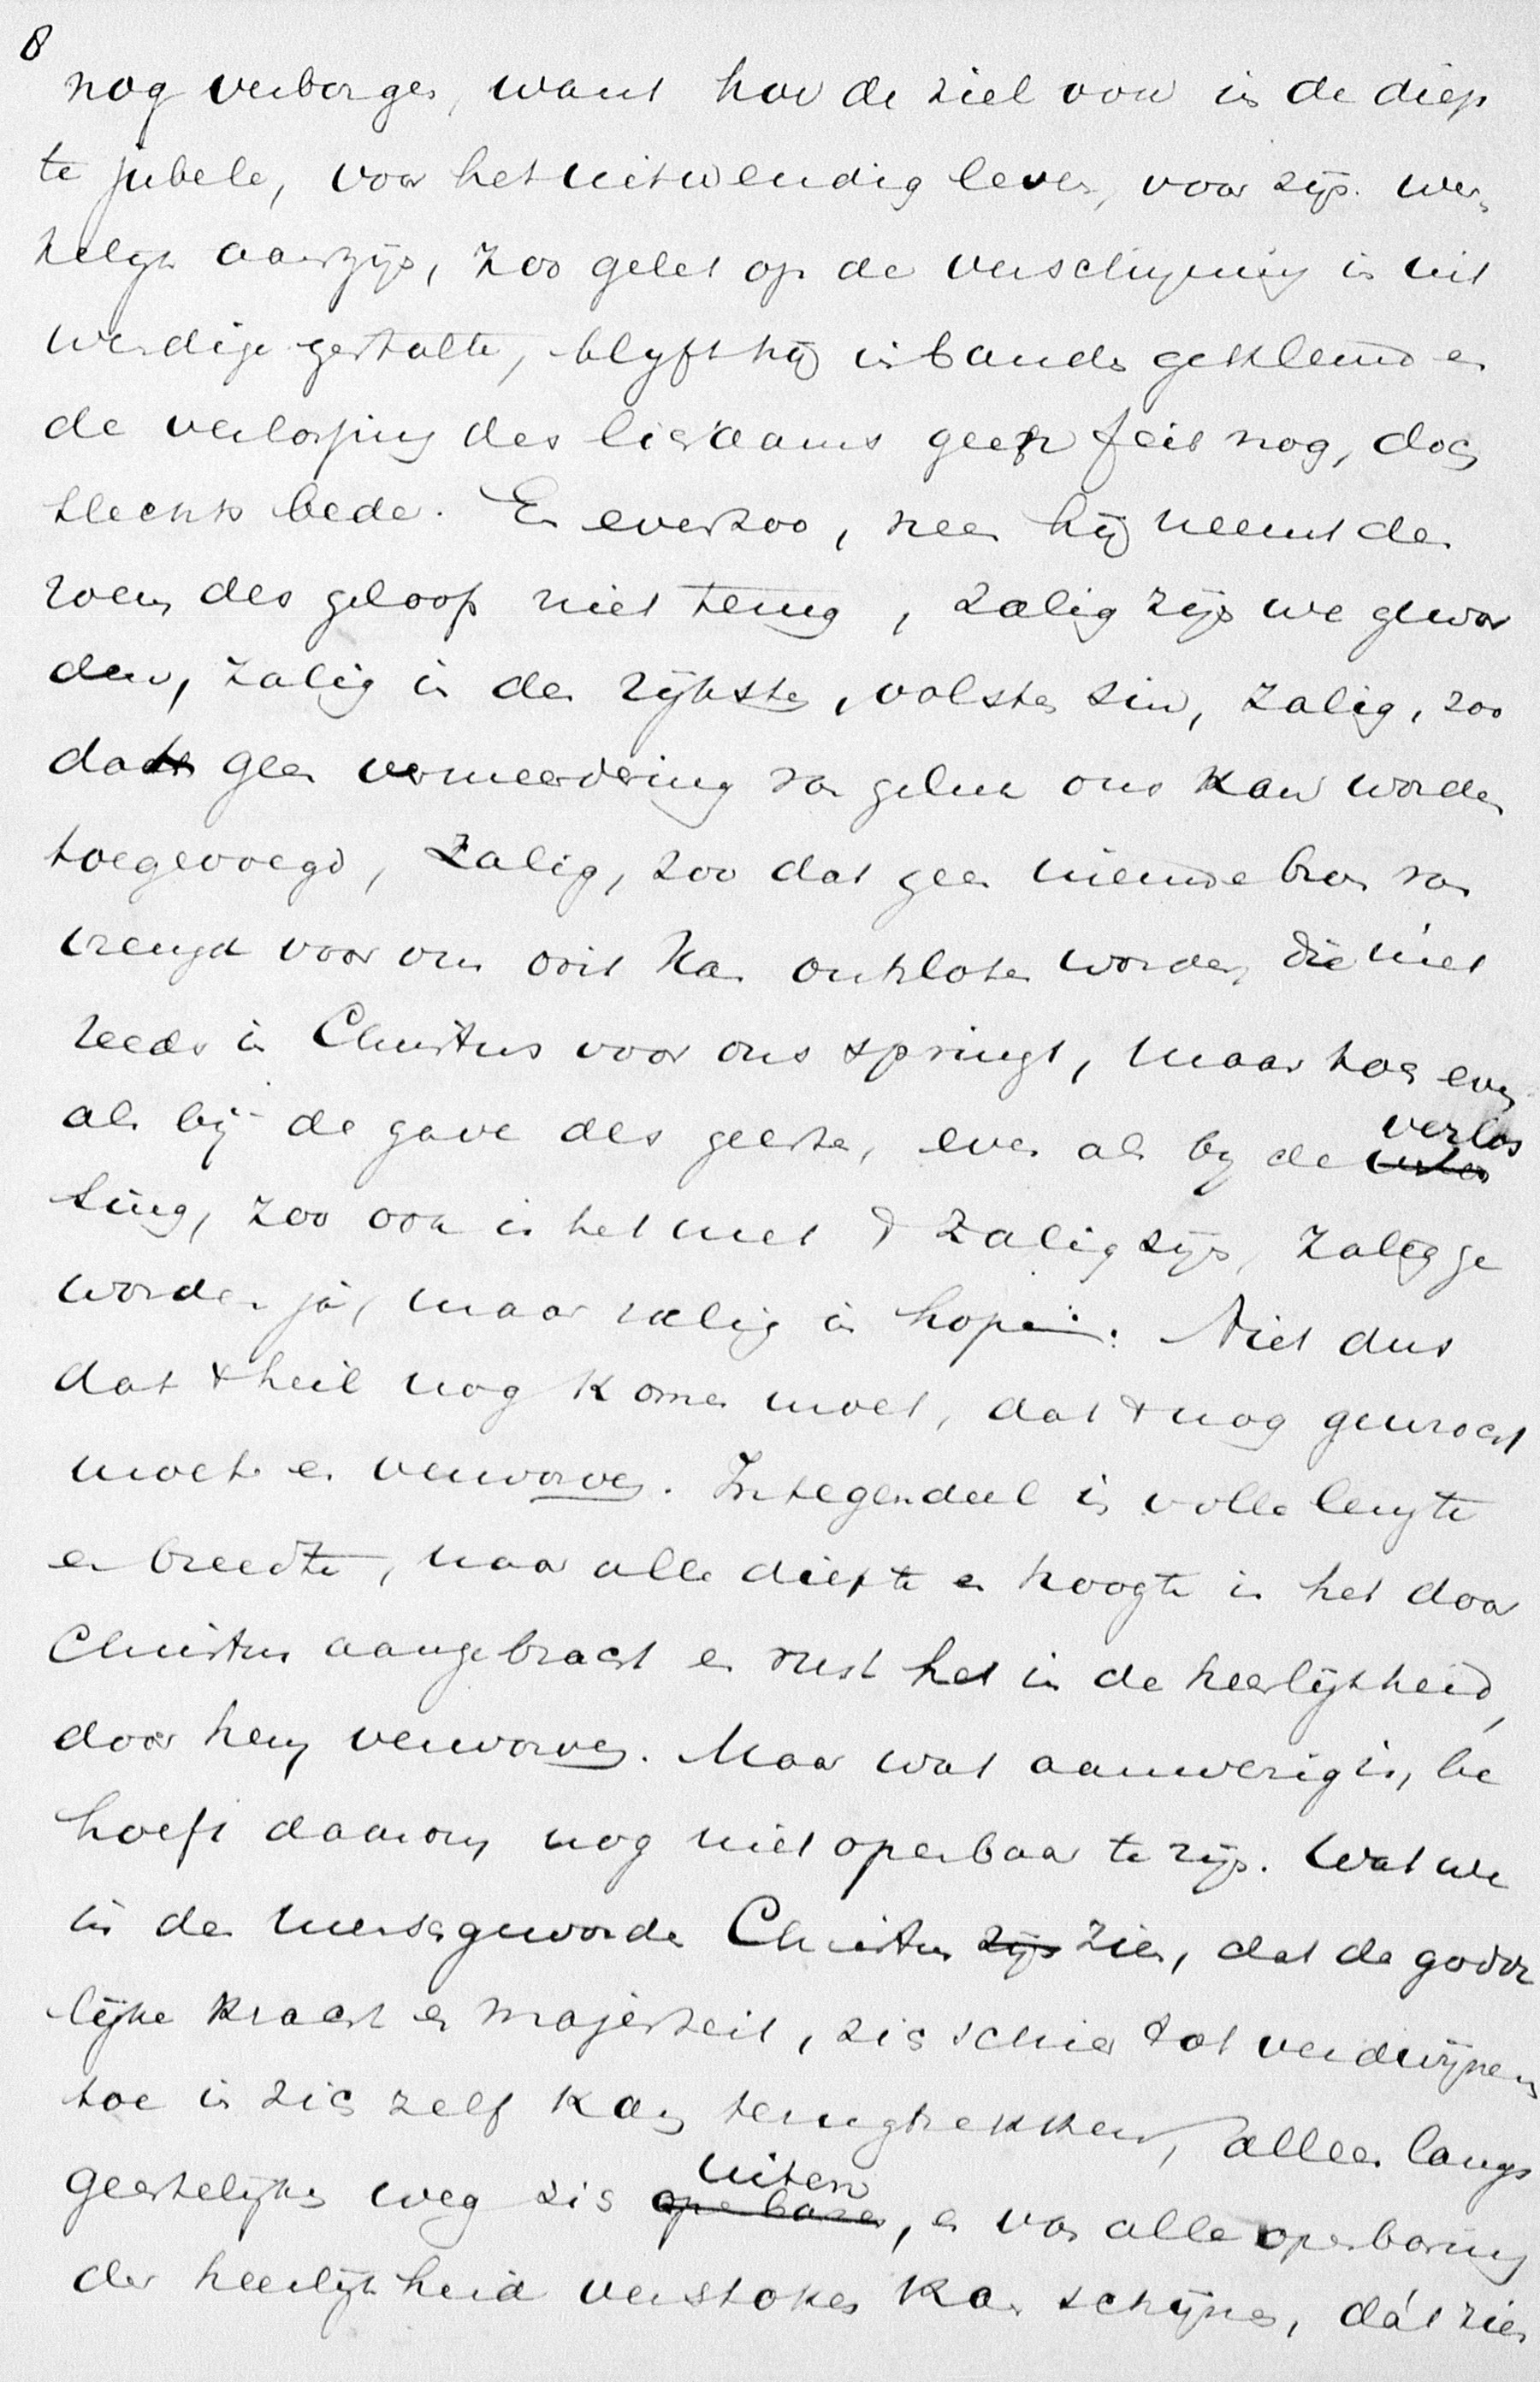 8
nog verborgen, want hoe de ziel ook in de diep
te jubele, voor het uitwendig leven, voor zijn wer
kelijk aanzijn, zoo gelet op de verschijning in uit
wendige gestalte, blijft hij in banden gekleind en
de verlossing des lichaams geen feit nog, doch
slechts bede. En evenzoo, neen hij neemt den
roem des geloofs niet terug, zalig zijn we gewor
den, zalig in den rijksten, volsten zin, zalig, zoo
dat geen vermeerdering van geluk ons kan worden
toegevoegd, zalig, zoo dat geen nieuwe bron van
vreugd voor ons ooit kan ontsloten worden, die niet
reeds in Christus voor ons springt, maar toch even
als bij de gave des geestes, even als bij de verlos
sing, zoo ook is het met 't zalig zijn, zalig ge
worden ja, maar zalig in hope. Niet dus
dat 't heil nog komen moet, dat 't nog gewrocht
moet en verworven. Integendeel in volle lengte
en breedte, naar alle diepte en hoogte is het door
Christus aangebracht en rust het in de heerlijkheid,
door hem verworven. Maar wat aanwezig is, be
hoeft daarom nog niet openbaar te zijn. Wat we
in den menschgeworden Christus ~~zijn~~ zien, dat de godde
lijke kracht en majesteit, zich schier tot verdwijnens
toe in zich zelf kan terugtrekken, alleen langs
geestelijken weg zich ~~openbaren~~ uiten, en van alle openbaring
der heerlijkheid verstoken kan schijnen, dát zien